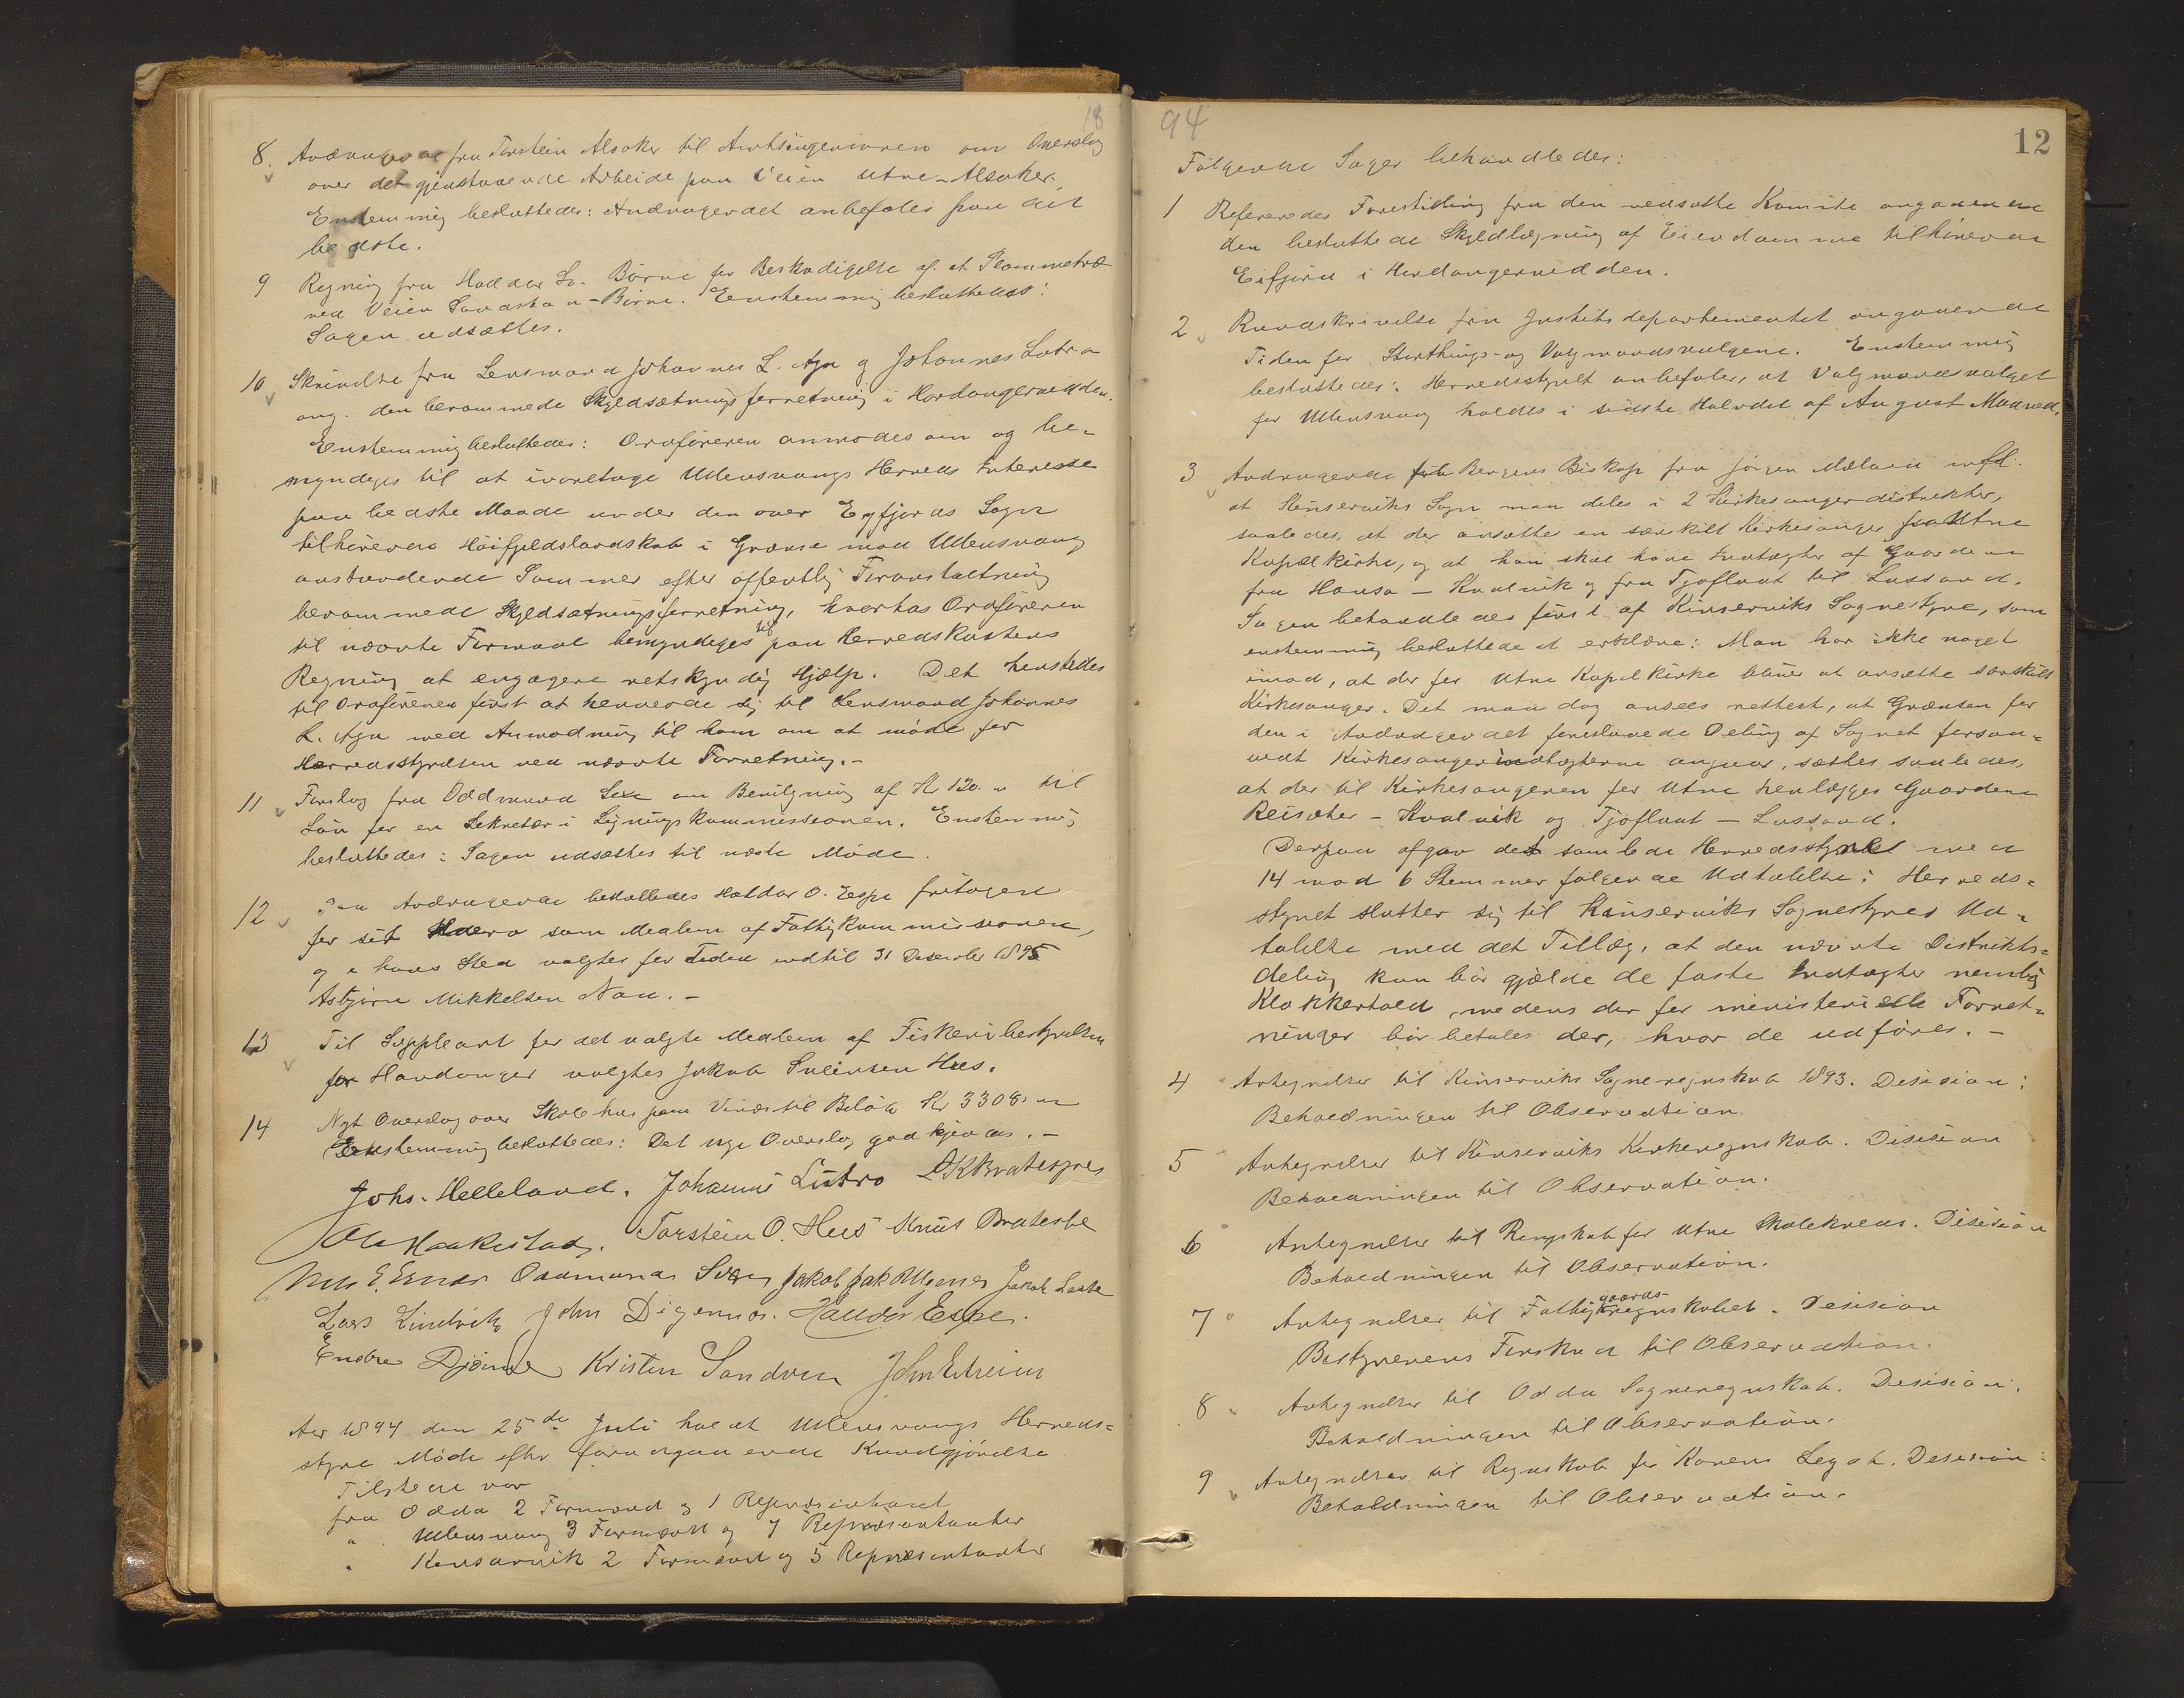 18
8. Andragende fra Torstein Alsaker til Amtsingeniøren om Overslag
over det gjenstaaende Arbeide paa Veien Utne-Alsaker.
Enstemmig besluttedes: Andragendet anbefales paa det
bedste.
9 Regning fra Haldor Sv. Børve for Beskadigelse af et Plommetræ
ved Veien Sandstøa-Børve. Enstemmig besluttedes:
Sagen udsættes.
10 Skrivelse fra Lensmand Johannes L. Aga og Johannes Lutro
ang. den berammede Skyldsætningsforretning i Hardangervidden.
Enstemmig besluttedes: Ordføreren anmodes om og be-
myndiges til at ivaretage Ullensvangs Herreds Interesse
paa bedste Maade under den over Eyfjords Sogn
tilhørende Høifjeldslandskab i Grænse mod Ullensvang
anstundende Sommer efter offentlig Foranstaltning
berammede Skyldsætningsforretning, hvorhos Ordføreren
til nævnte Formaal bemyndiges til paa Herredskassens
Regning at engagere retskyndig Hjælp. Det henstilles
til Ordføreren først at henvende sig til Lensmand Johannes
L. Aga med Anmodning til ham om at møde for
Herredsstyrelsen ved nævnte Forretning.-
11 Forslag fra Oddmund Sexe om Bevilgning af Kr 120.- til
Løn for en Sekretær i Ligningskommissionen. Enstemmig
besluttedes: Sagen udsættes til næste Møde.
12 Paa Andragende besluttedes Haldor O. Espe fritagen
for sit Hverv som Medlem af Fattigkommissionen,
og i hans Sted valgtes for Tiden indtil 31 December 1895
Asbjørn Mikkelsen Nau.-
13 Til Suppleant for det valgte Medlem af Fiskeribestyrelsen
for Hardanger valgtes Jakob Sveinsen Hus.
14 Nyt Overslag over Skolehus paa Vines til Beløb Kr 3308.-
Enstemmig besluttedes: Det nye Overslag godkjendes.-
Johs. Helleland. Johannes Lutro
Ola Haakestad. Torstein O. Hus Knut Bratespe
Oddmund Sexe Jakob
Lars Lindvik John Digernes. Haldor Espe.
Endre Djønne Kristen Sandven John Eitheim
Aar 1894 den 25de Juli holdt Ullensvangs Herreds-
styre Møde efter foraugaaende Kundgjørelse
Tilstede var
fra Odda 2 Formænd og 1 Repræsentant
" Ullensvang 3 Formænd og 7 Repræsentanter
" Kinsarvik 2 Formænd og 5 Repræsentanter
94
12
Følgende Sager behandledes:
1 Refereredes Forestilling fra den nedsatte Komite angaaende
den besluttede Skyldlægning af Eiendomme tilhørende
Eifjord i Hardangervidden.
2 Rundskrivelse fra Justitsdepartementet angaaende
Tiden for Storthings- og Valgmandsvalgene. Enstemmig
besluttedes: Herredsstyret anbefaler, at Valgmandsvalget
for Ullensvang holdes i sidste Halvdel af August Maaned.
3 Andragende til Bergens Biskop fra Jørgen Mæland mfl.
at Kinserviks Sogn maa deles i 2 Kirkesangerdistrikter,
saaledes, at der ansættes en særskilt Kirkesanger for Utne
Kapelkirke, og at han skal have Indtægter af Gaardene
fra Hauso - Kvalvik og fra Tjoflaat til Lussand.
Sagen behandledes først af Kinserviks Sognestyre, som
enstemmig besluttede at erklære: Man har ikke noget
imod, at der for Utne Kapelkirke bliver at ansætte særskilt
Kirkesanger. Det maa dog ansees rettest, at Grænsen for
den i Andragendet foreslaaede Deling af Sognet forsaa-
vidt Kirkesangerindtægterne angaar, sættes saaledes,
at der til Kirkesangeren for Utne henlægges Gaardene
Reisæter - Kvalvik og Tjoflaat - Lussand.
Derpaa afgav det samlede Herredsstyre med
14 mod 6 Stemmer følgende Udtalelse: Herreds-
styret slutter sig til Kinserviks Sognestyres Ud-
talelse med det Tillæg, at den nævnte Distrikts-
deling kun bør gjælde de faste Indtægter nemlig
Klokkertold, medens der for ministerielle Forret-
ninger bør betales der, hvor de udføres.-
4 Antegnelser til Kinserviks Sogneregnskab 1893. Desision:
Beholdningen til Observation
5 Antegnelser til Kinserviks Kirkeregnskab. Disision
Beholdningen til Observation.
6 Antegnelser til Regnskab for Utne Skolekreds. Disision
Beholdningen til Observation.
7 Antegnelser til Fattiggaardsregnskabet. Desision
Bestyrerens Forskud til Observation.
8 Antegnelser til Odda Sogneregnskab. Desision:
Beholdningen til Observation.
9 Antegnelser til Regnskab for Konens Legat. Desision:
Beholdningen til Observation.